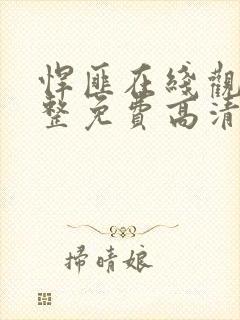 悍匪在綫觀
整免費高清
掃晴娘